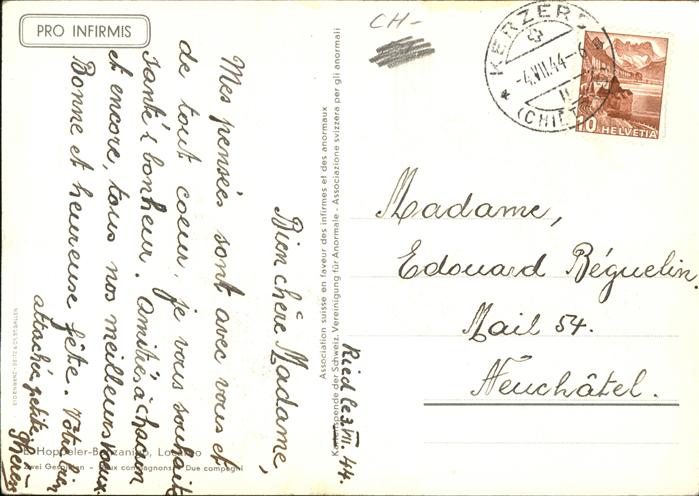 PRO INFIRMIS
CH-
KERZERS
-4.VII.44-6
(CHIÈTRES)
10 HELVETIA
Ried le 3. VII. 44.
Bien chère Madame,
Mes pensées sont avec vous et
de tout coeur, je vous souhaite
santé & bonheur. Amitiés à chacun
et encore, tous nos meilleurs vœux.
Bonne et heureuse fête. Votre bien
attachée petite
Madame,
Edouard Béguelin.
Mail 54.
Neuchâtel.
Association suisse en faveur des infirmes et des anormaux
Kartenspende der Schweiz. Vereinigung für Anormale - Associazione svizzera per gli anormali
Hoppeler-Bonzanigo, Locarno
Zwei Gespanen - Deux compagnons - Due compagni